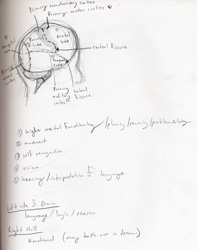 Primary somatosensory cortex
Primary motor cortex
Parietal
Lobe
Frontal
Lobe
central fissure
Primary
auditory
cortex
lateral
fissure
① higher mental functioning / planning / reasoning / problem solving
② movement
③ self recognition
④ vision
⑤ hearing / interpretation of language
Left side of Brain
language / logic / reason
Right Half
Emotional (may take over @ times)